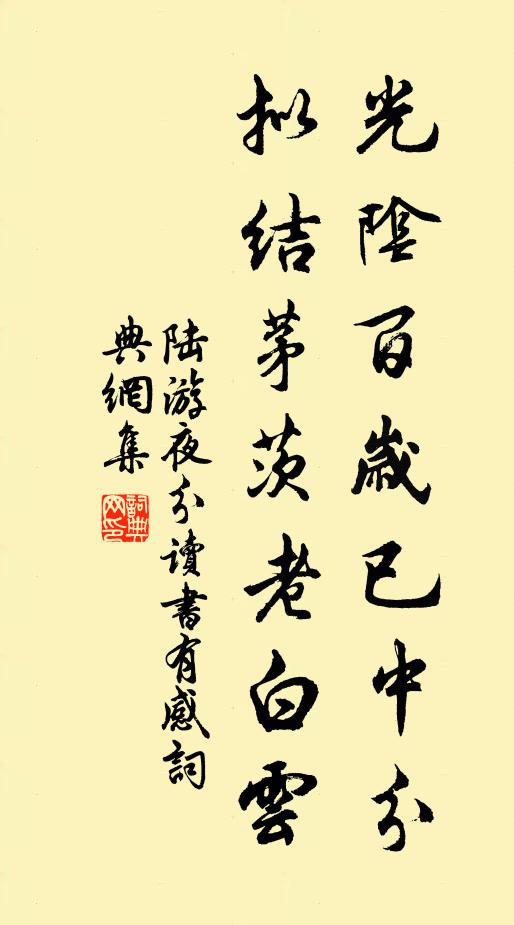 光陰百歲已中分
拟結茅茨老白雲
陆游夜分讀書有感詞
典網集
詞典网印